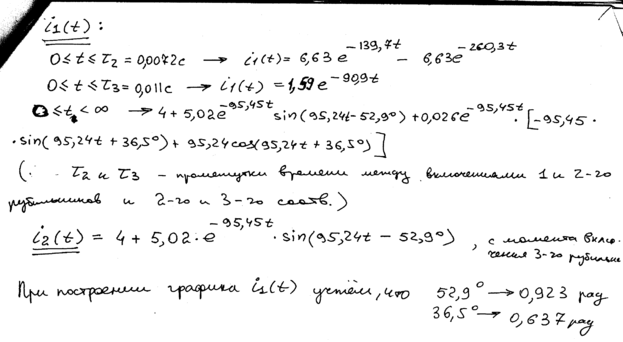 i₁(t):
0 ≤ t ≤ τ₂ = 0,0072c → i₁(t) = 6,63 e^{-139,7t} - 6,63 e^{-260,3t}
0 ≤ t ≤ τ₃ = 0,011c → i₁(t) = 1,59 e^{-90,9t}
0 ≤ t < ∞ → 4 + 5,02e^{-95,45t} sin(95,24t - 52,9°) + 0,026e^{-95,45t} · [-95,45 ·
· sin(95,24t + 36,5°) + 95,24 cos(95,24t + 36,5°)]
( τ₂ и τ₃ - промежутки времени между включениями 1 и 2-го
рубильников и 2-го и 3-го соотв.)
i₂(t) = 4 + 5,02 · e^{-95,45t} · sin(95,24t - 52,9°) , с момента вклю-
чения 3-го рубильн
При построении графика i₁(t) учтём, что 52,9° → 0,923 рад
36,5° → 0,637 рад